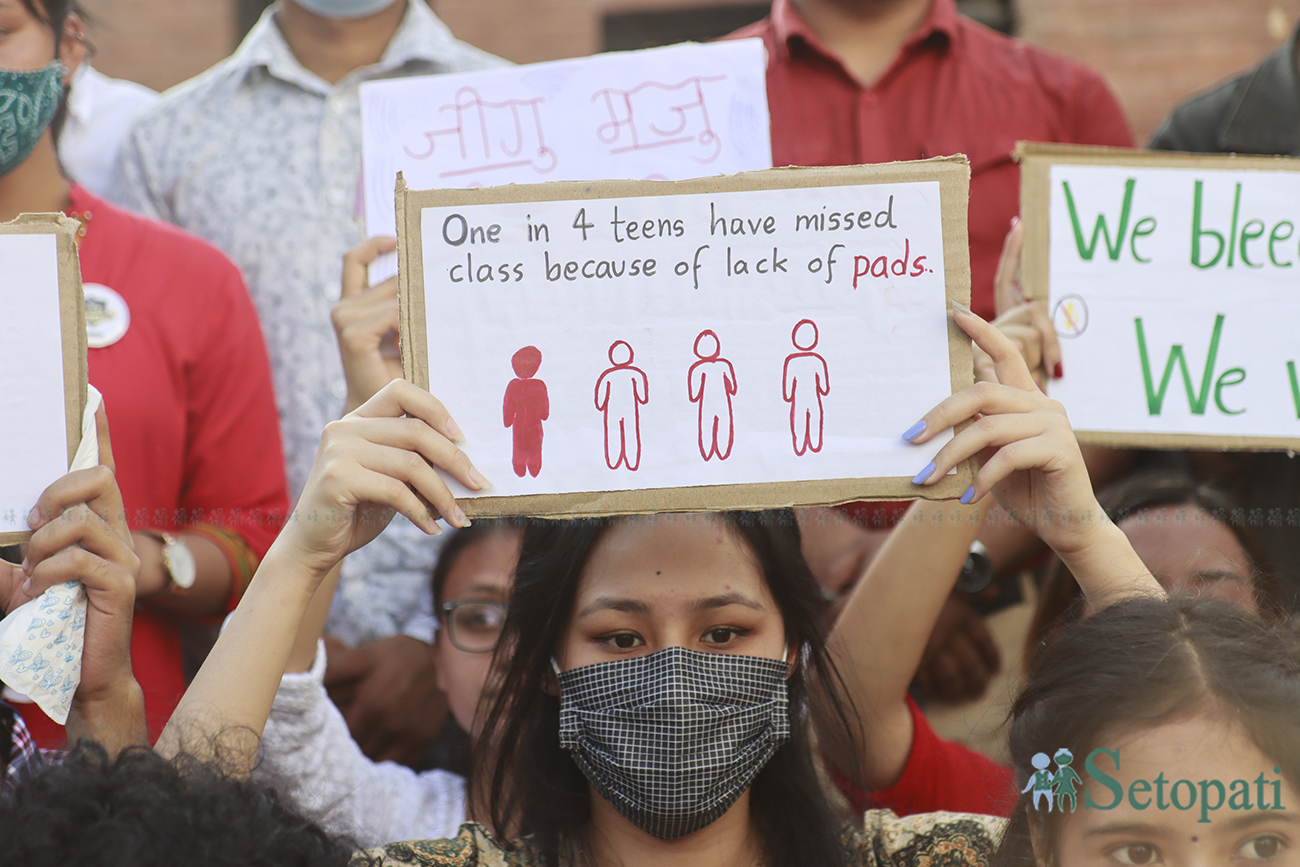 जीगु भाजु
One in 4 teens have missed
class because of lack of pads..
We
We
Setopati